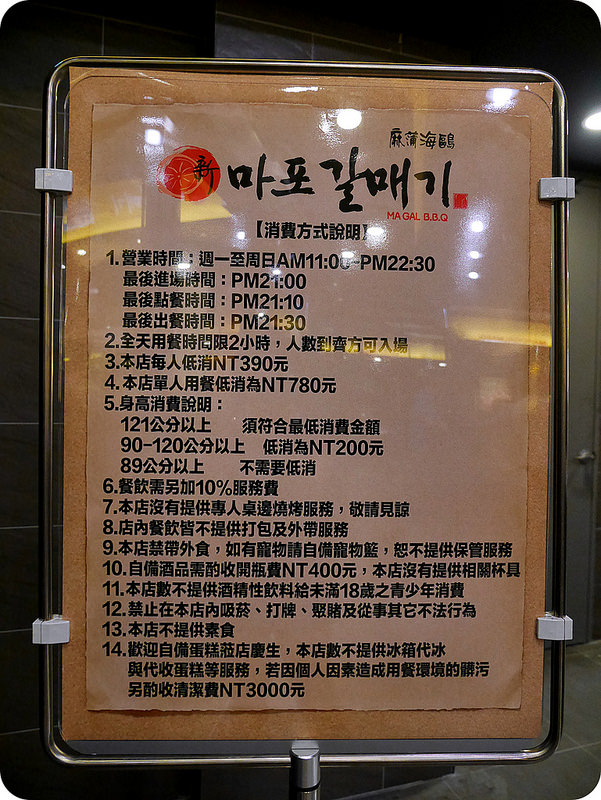 麻蒲海鷗
新 마포갈매기
MA GAL B.B.Q
【消費方式說明】
1.營業時間：週一至周日AM11:00~PM22:30
最後進場時間：PM21:00
最後點餐時間：PM21:10
最後出餐時間：PM21:30
2.全天用餐時間限2小時，人數到齊方可入場
3.本店每人低消NT390元
4.本店單人用餐低消為NT780元
5.身高消費說明：
121公分以上 須符合最低消費金額
90-120公分以上 低消為NT200元
89公分以上 不需要低消
6.餐飲需另加10%服務費
7.本店沒有提供專人桌邊燒烤服務，敬請見諒
8.店內餐飲皆不提供打包及外帶服務
9.本店禁帶外食，如有寵物請自備寵物籃，恕不提供保管服務
10.自備酒品需酌收開瓶費NT400元，本店沒有提供相關杯具
11.本店數不提供酒精性飲料給未滿18歲之青少年消費
12.禁止在本店內吸菸、打牌、聚賭及從事其它不法行為
13.本店不提供素食
14.歡迎自備蛋糕蒞店慶生，本店數不提供冰箱代冰
與代收蛋糕等服務，若因個人因素造成用餐環境的髒污
另酌收清潔費NT3000元